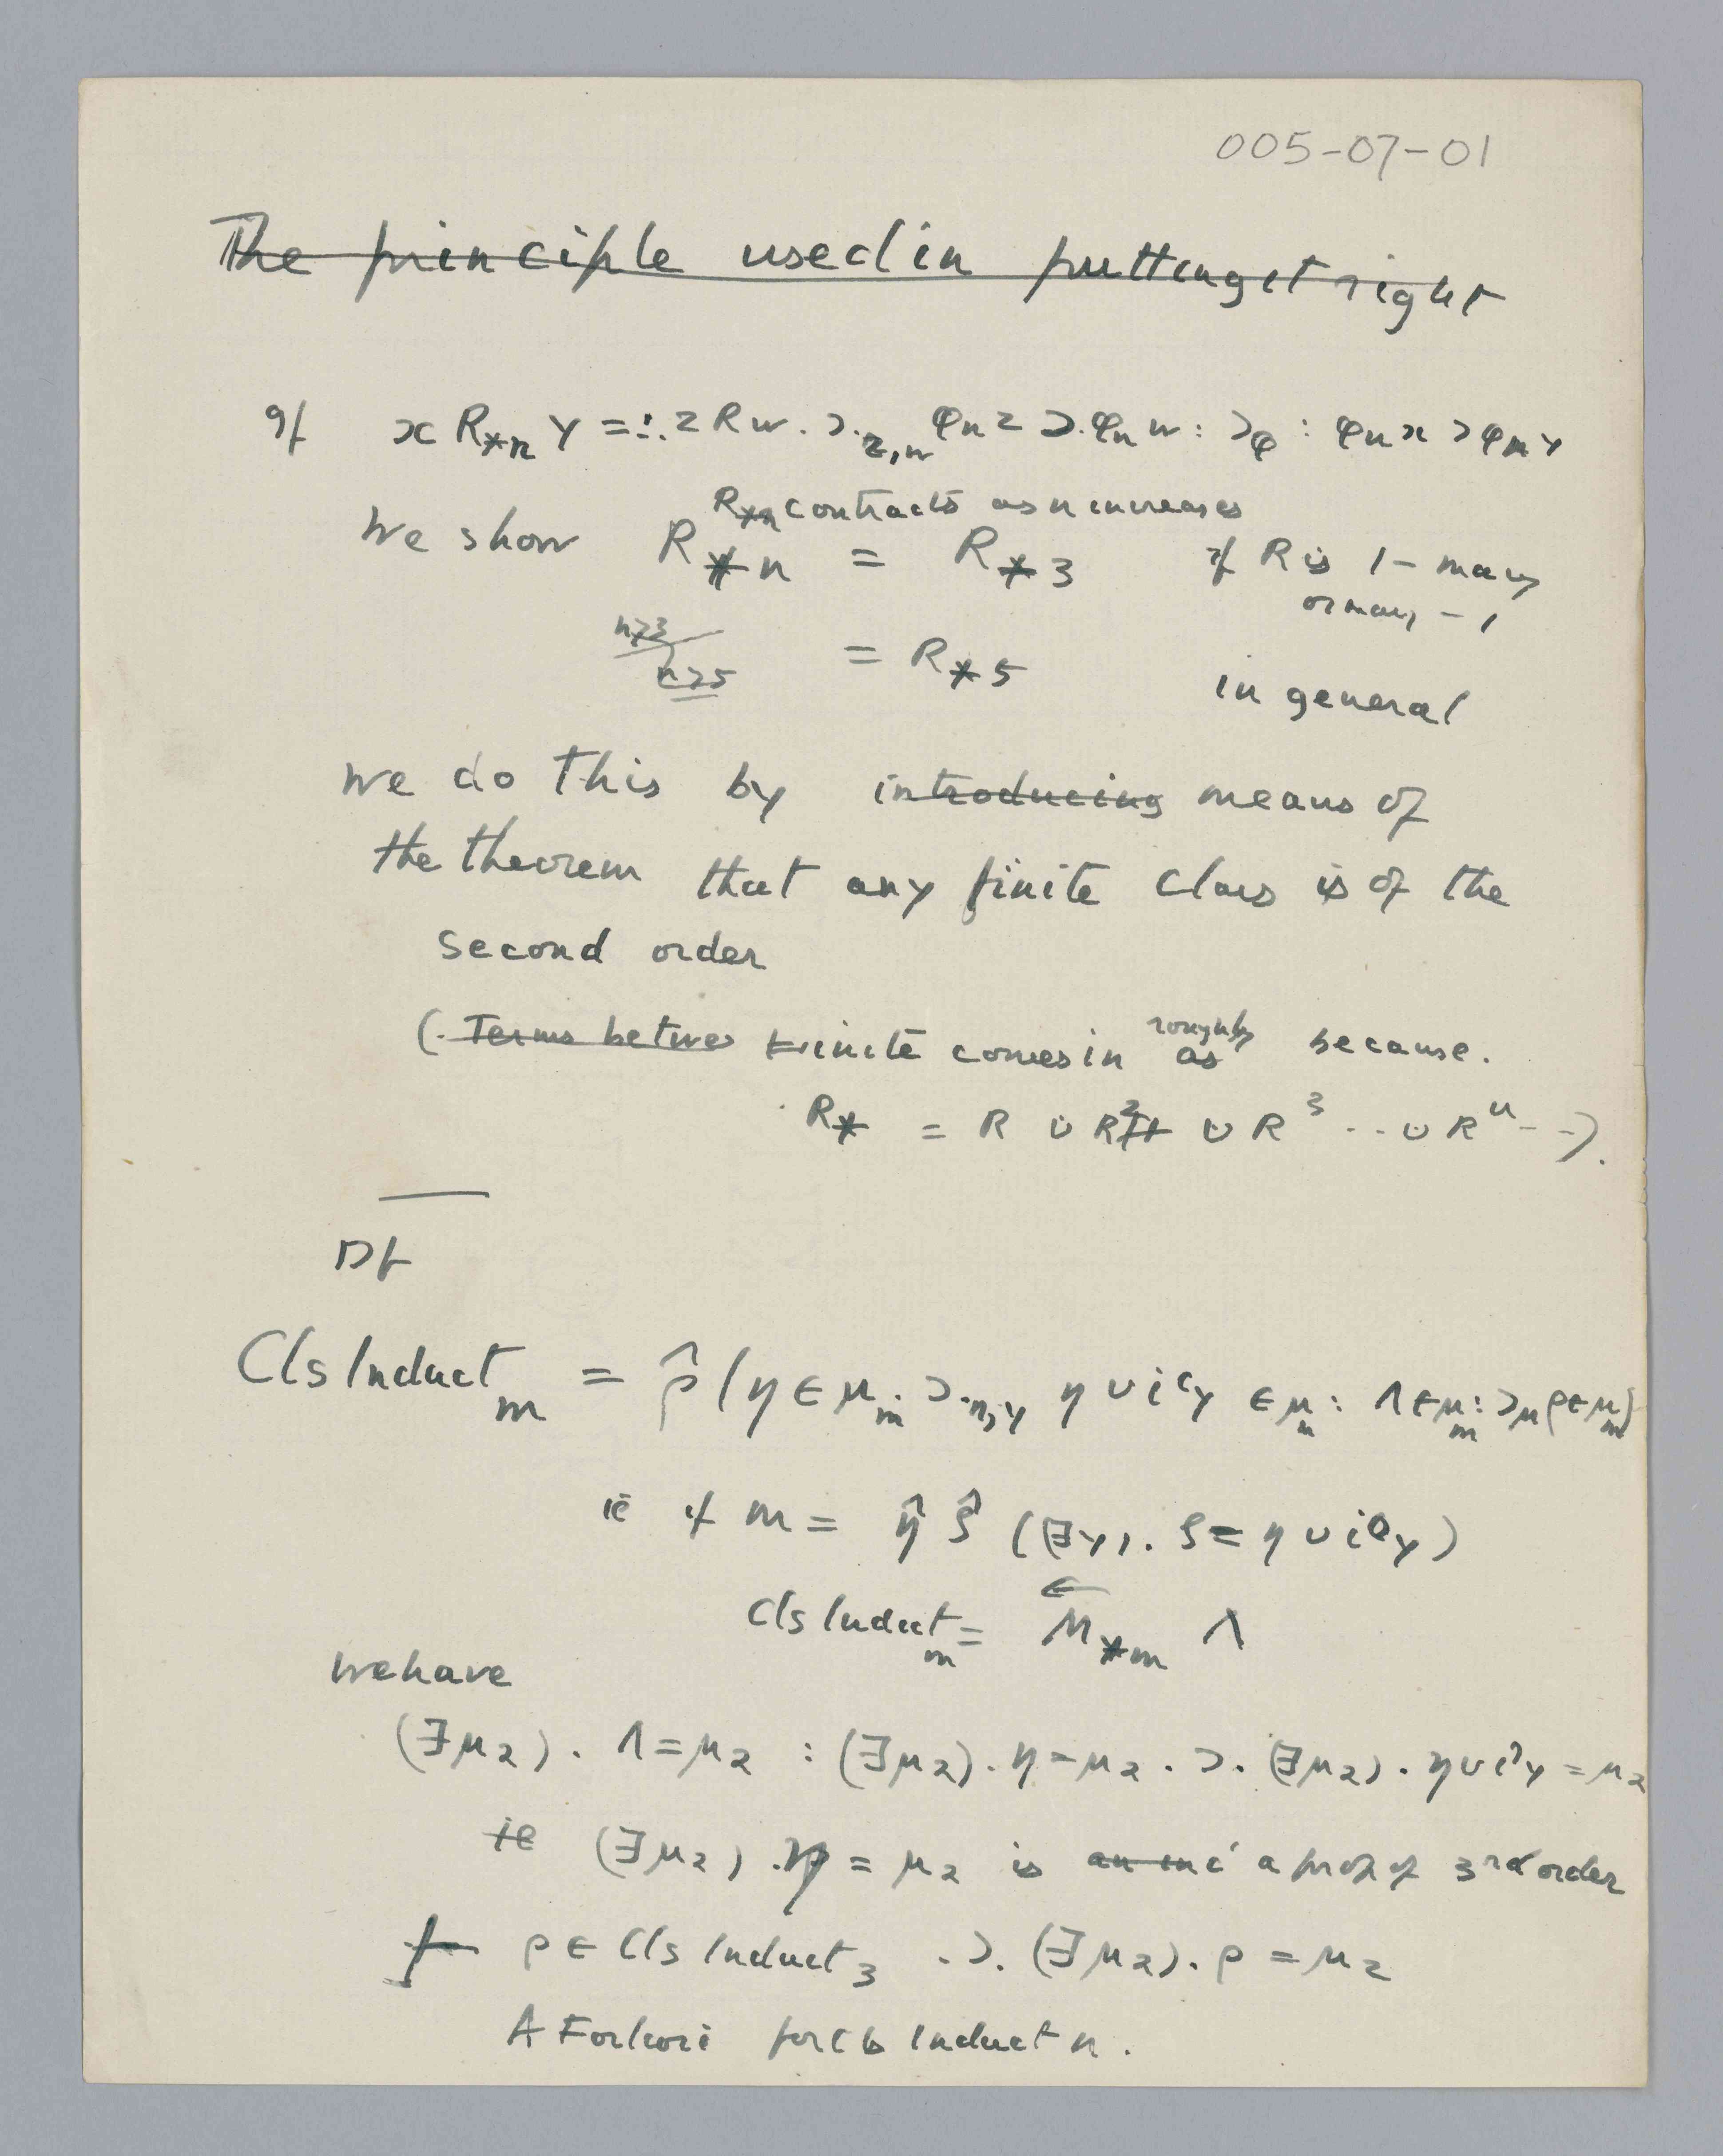 005-07-01
The principle used in putting it right
If x R*n y =:. z R w . ⊃.z,w φn z ⊃. φn w : ⊃φ : φn x ⊃ φn y
R*n contracts as n increases
We show R*n = R*3 if R is 1 – many
or many – 1
n≥3
= R*5 in general
n≥5
we do this by introducing means of
the theorem that any finite class is of the
second order
(. Terms betwe Finite comes in roughly as because.
R* = R ∪ R² ∪ R³ .. ∪ Rⁿ - - ).
Df
Cls Induct m = ρ̂ ( η ∈ μm . ⊃.η,y η ∪ i‘y ∈ μm : Λ ∈ μm : ⊃μ ρ ∈ μm )
ie if M = η̂ ζ̂ (∃y) . ζ = η ∪ i‘y )
Cls Induct m = M⃖*m Λ
we have
(∃μ2) . Λ = μ2 : (∃μ2) . η = μ2 . ⊃. (∃μ2) . η ∪ i‘y = μ2
ie (∃μ2) . η = μ2 is a prop of 3rd order
ρ ∈ Cls Induct 3 . ⊃. (∃μ2) . ρ = μ2
A Fortiori for Cls Induct n .